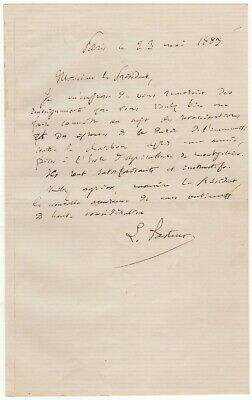 Paris le 23 mai 1883
Monsieur le Président,
Je m'empresse de vous remercier des
renseignements que vous voulez bien me
faire connaître au sujet des vaccinations
et des épreuves de la
contre le charbon, après une année,
faites à l'Ecole d'Agriculture de Montpellier.
Ils sont satisfaisants et instructifs.
Veuillez agréer, monsieur le Président,
la nouvelle assurance de mes sentiments
de haute considération
L. Pasteur